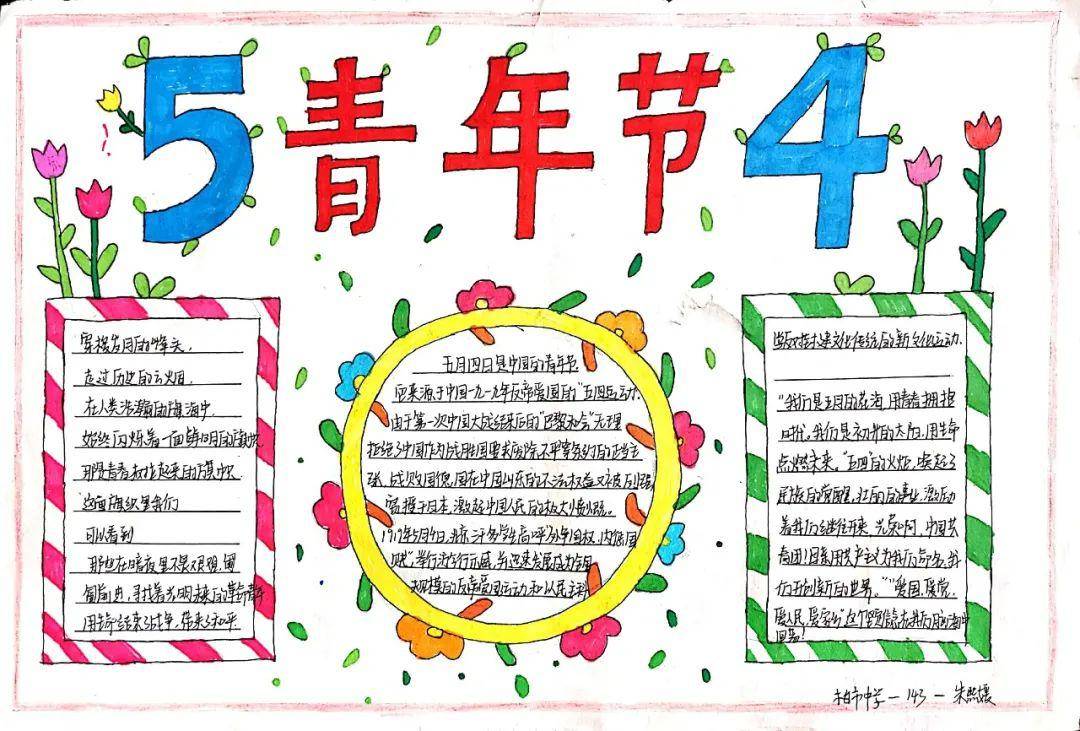 5青年节4
穿梭岁月的烽火,
走过历史的云烟.
在人类浩瀚的旗海中
始终闪烁着一面鲜明的旗帜
那是青春树作起来的旗帜
这面旗帜里我们
可以看到
那些在暗夜里不畏艰难,匍
匐前进,寻找着光明未来的革命青年
用生命结束了战争,带来了和平
五月四日是中国的青年节
它来源于中国一九一九年反帝爱国的"五四运动".
由于第一次中国大战结束后的"巴黎和会"无理
拒绝了中国作为战胜国要求废除不平等条约的正当主
张,战败国德国在中国山东的不法权益又被列强
窃授于日本,激起中国人民的极大愤怒.
1919年5月4日,北京三千多学生高呼"外争国权,内惩国
贼",举行游行示威,并迅速发展成为全国
规模的反帝爱国运动和以民主科
学反对封建文化传统的新文化运动.
"我们是五月的花海,用青春拥抱
时代,我们是初升的太阳,用生命
点燃未来."五四"的火炬,唤起了
民族的觉醒,壮丽的事业,激励
着我们继往开来.光荣啊,中国共
青团!
爱人民,
柏市中学-143-朱熙